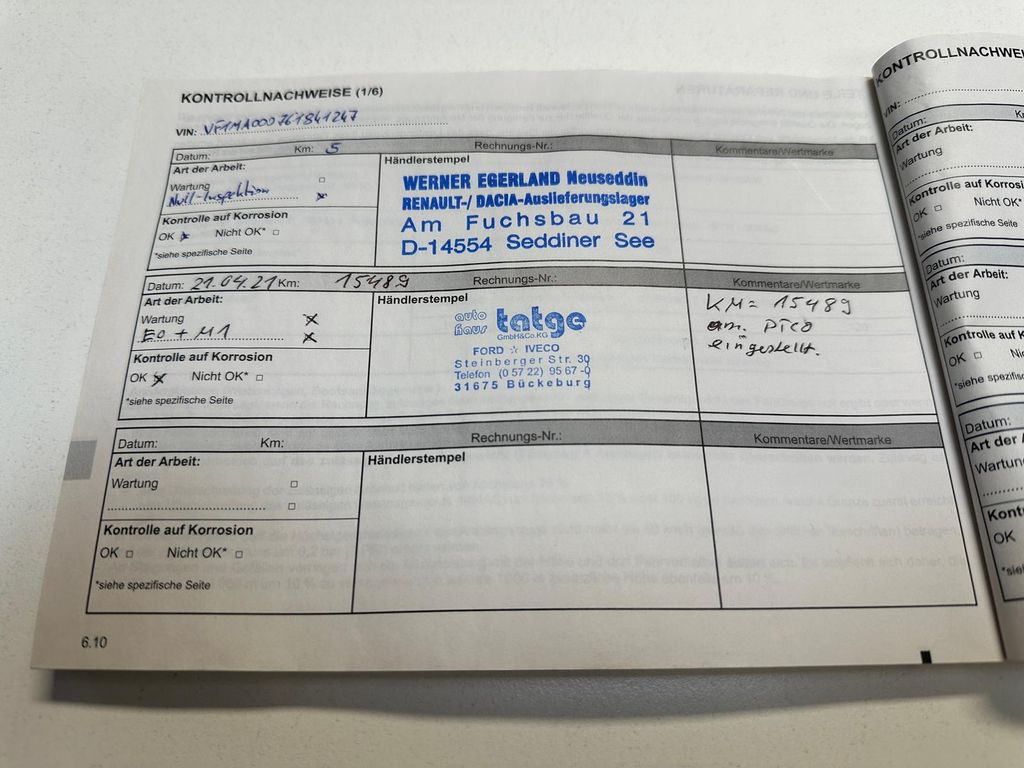 KONTROLLNACHWEISE (1/6)
VIN: VF1MA000761841247
Datum: Km: 5 Rechnungs-Nr.: Kommentare/Wertmarke
Art der Arbeit:
Wartung
Null-Inspektion
Kontrolle auf Korrosion
OK Nicht OK*
*siehe spezifische Seite
Händlerstempel
WERNER EGERLAND Neuseddin
RENAULT-/ DACIA-Auslieferungslager
Am Fuchsbau 21
D-14554 Seddiner See
Datum: 21.04.21 Km: 15489 Rechnungs-Nr.: Kommentare/Wertmarke
Art der Arbeit:
Wartung
E0 + M1
Kontrolle auf Korrosion
OK Nicht OK*
*siehe spezifische Seite
Händlerstempel
auto haus tatge
GmbH&Co.KG
FORD ☆ IVECO
Steinberger Str. 30
Telefon (0 57 22) 95 67-0
31675 Bückeburg
KM = 15489
am. PICO
eingestellt.
Datum: Km: Rechnungs-Nr.: Kommentare/Wertmarke
Art der Arbeit:
Wartung
Kontrolle auf Korrosion
OK Nicht OK*
*siehe spezifische Seite
Händlerstempel
6.10
KONTROLLNACHWE
VIN:
Datum:
Art der Arbeit:
Wartung
Kontrolle auf Korrosi
OK Nicht OK*
*siehe spezifische Seite
Datum:
Art der Arbeit:
Wartung
Kontrolle auf K
OK
*siehe spezifisc
Datum:
Art der
Wartung
Kont
OK